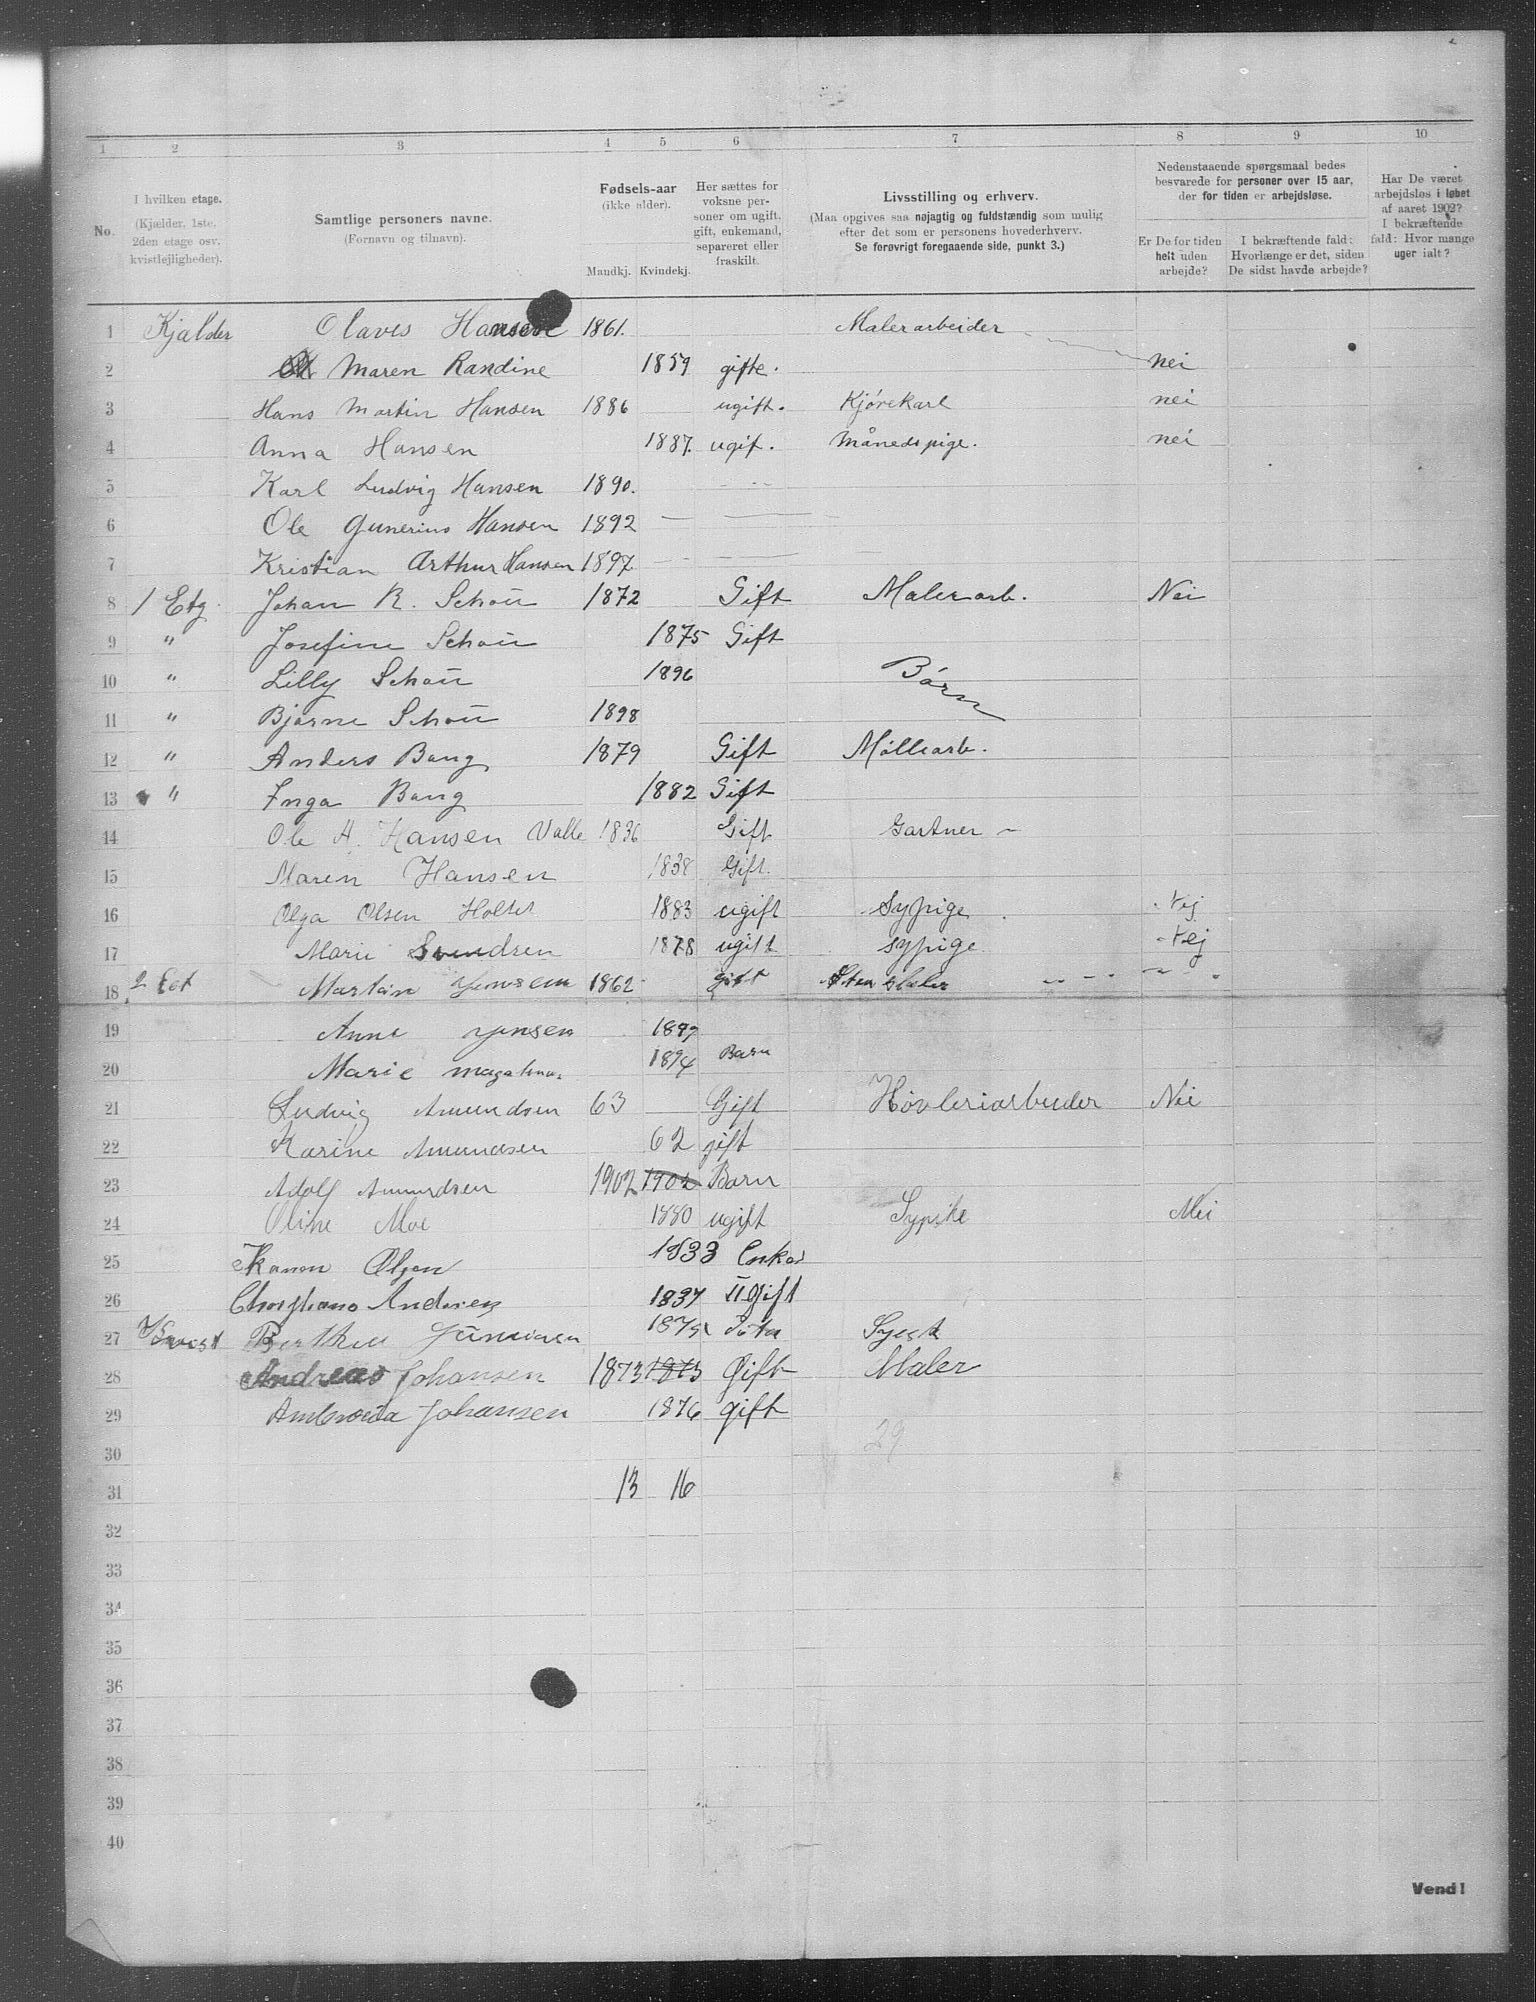 1 2 3 4 5 6 7 8 9 10
No.
I hvilken etage.
(Kjælder, 1ste, 2den etage osv. kvistlejligheder).
Samtlige personers navne.
(Fornavn og tilnavn).
Fødsels-aar
(ikke alder).
Mandkj. Kvindekj.
Her sættes for voksne personer om ugift, gift, enkemand, separeret eller fraskilt.
Livsstilling og erhverv.
(Maa opgives saa nøjagtig og fuldstændig som mulig
efter det som er personens hovederhverv.
Se forøvrigt foregaaende side, punkt 3.)
Nedenstaaende spørgsmaal bedes
besvarede for personer over 15 aar,
der for tiden er arbejdsløse.
Er De for tiden helt uden arbejde?
I bekræftende fald: Hvorlænge er det, siden De sidst havde arbejde?
Har De været arbejdsløs i løbet af aaret 1902? I bekræftende fald: Hvor mange uger ialt?
1 Kjælder Olaves Hansen 1861. Malerarbeider
2 Maren Randine 1859 gifte. nei
3 Hans Martin Hansen 1886 ugift. Kjørekarl nei
4 Anna Hansen 1887. ugif. Månedspige. nei
5 Karl Ludvig Hansen 1890.
6 Ole Gunerius Hansen 1892
7 Kristian Arthur Hansen 1897
8 1 Etg. Johan R. Schou 1872 Gift Malerarb. Nei
9 " Josefine Schou 1875 Gift
10 " Lilly Schou 1896 Børn
11 " Bjarne Schou 1898
12 " Anders Bang 1879 Gift Møllearb.
13 " Inga Bang 1882 Gift
14 Ole H. Hansen Valle 1836 Gift Gartner
15 Maren Hansen 1838 Gift.
16 Olga Olsen Holter 1883 ugift Sypige Nej
17 Marie Svendsen 1878 ugift sypige Nej
18 2 Eet Martin Jensen 1862 gift
19 Anne Jensen
20 Marie 1894 Barn
21 Ludvig Amundsen 63 Gift Høvleriarbeider Nei
22 Karine Amundsen 62 gift
23 Adolf Amundsen 1902 1902 Barn
24 Oline Moe 1880 ugift Sypike Nei
25 Olsen 1833 Enke
26 Andersen 1837 Ugift
27 Syerske
28 Andreas Johansen 1873 1873 Gift Maler
29 Johansen 1876 gift
30 29
31 13 16
32
33
34
35
36
37
38
39
40
Vend!